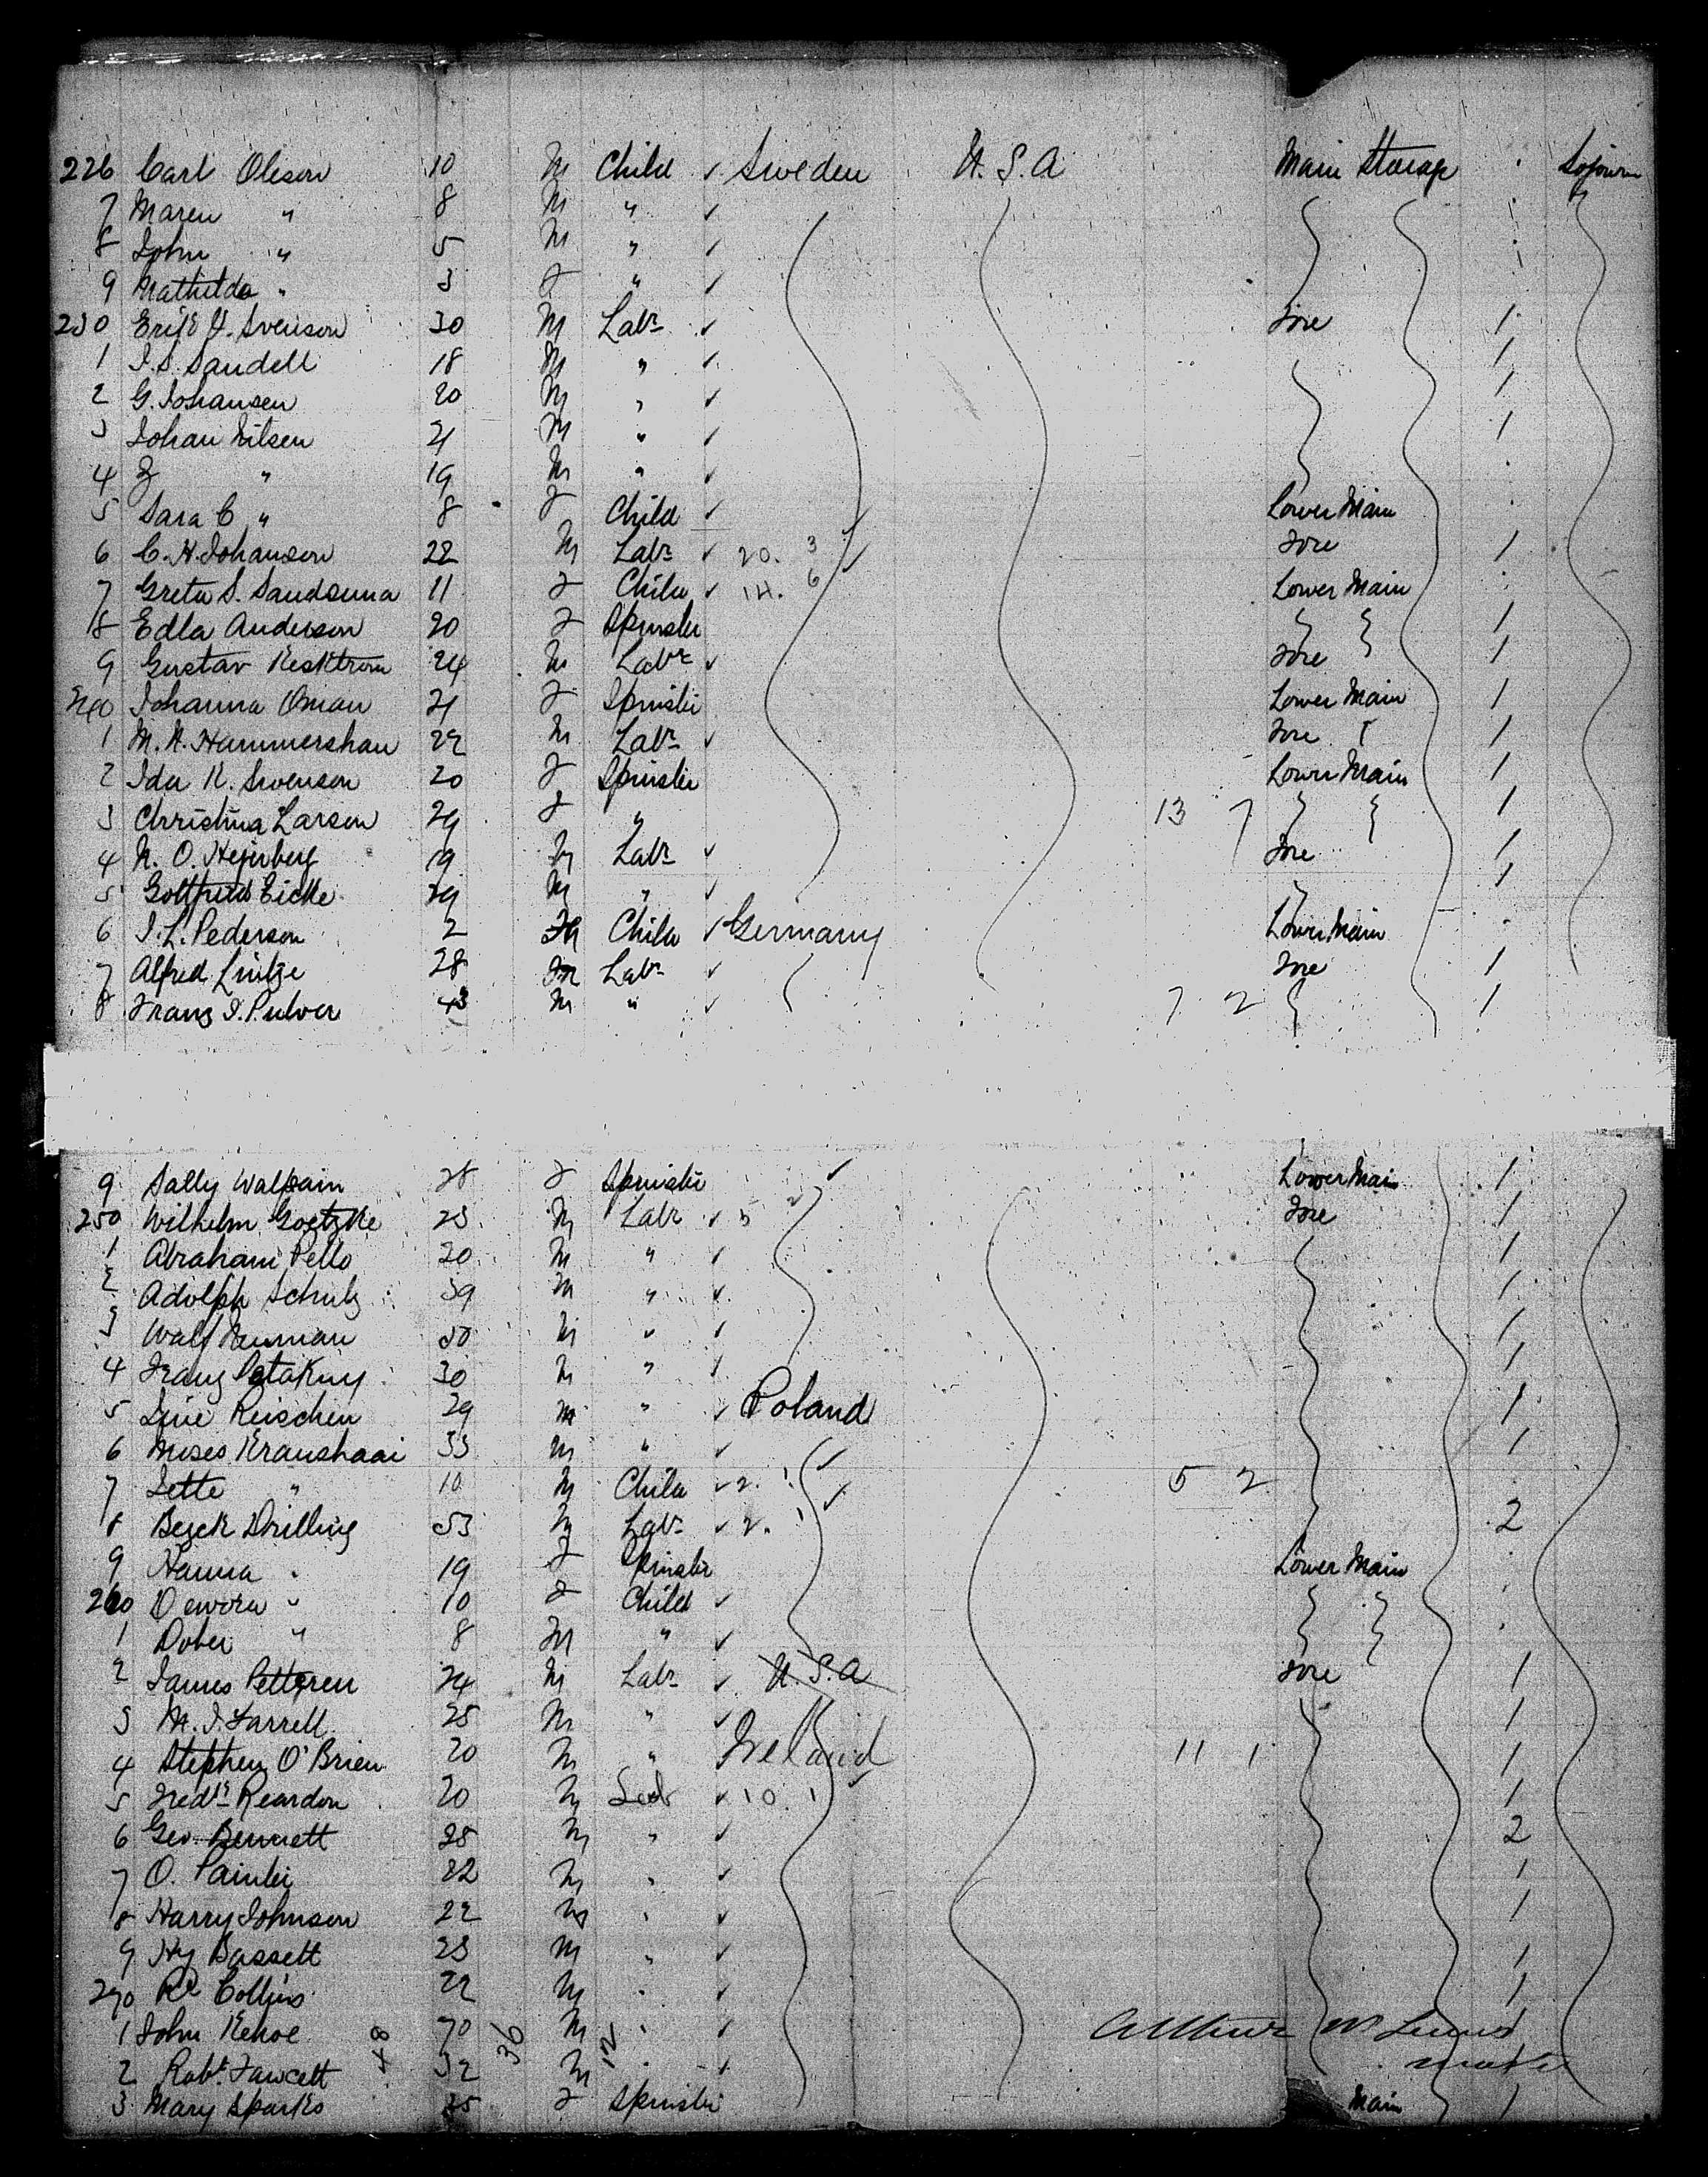 226 Carl Oleson 10 M Child ✓ Sweden U.S.A Main Steerage Sojourn
7 Maren " 8 M " ✓
8 John " 5 M " ✓
9 Mathilda " 3 F " ✓
230 Erik H. Svenson 30 M Labr ✓ Fore 1
1 J.S. Sandell 18 M " ✓ 1
2 G. Johansen 20 M " ✓ 1
3 Johan Nilsen 21 M " ✓ 1
4 F " 19 M " ✓
5 Sara C " 8 F Child ✓ Lower Main
6 C.H. Johanson 22 M Labr ✓ 20. 3 Fore 1
7 Greta S. 11 F Child ✓ 14. 6 Lower Main
8 Edla Anderson 20 F Spinster 1
9 Gustav 24 M Labr ✓ Fore 1
240 Johanna Oman 21 F Spinster Lower Main 1
1 M.N. Hammershan 22 M Labr ✓ Fore 1
2 Ida K. Swenson 20 F Spinster Lower Main 1
3 Christina Larson 29 F " 13 7 1
4 N.O. Hejerberg 19 M Labr ✓ Fore 1
5 Gottfried Eicke 29 M " ✓ 1
6 J.L. Pederson 2 Child ✓ Germany Lower Main
7 Alfred 28 M Labr ✓ Fore 1
8 Franz J. Pulver 43 M " ✓ 7 2 1
9 Sally Walpain 28 F Spinster Lower Main 1
250 Wilhelm Goetzke 23 M Labr ✓ 5 2 Fore 1
1 Abraham Pello 20 M " ✓ 1
2 Adolph Schulz 39 M " ✓ 1
3 Walf Neuman 50 M " ✓ 1
4 Franz 30 M " ✓ 1
5 Reischen 29 M " ✓ Poland 1
6 Moses Kraushaar 33 M " ✓ 1
7 Jette " 10 M Child ✓ 2. 1 5 2
8 Drilling 53 M Labr ✓ 2. 1 2
9 Hanna " 19 F Spinster Lower Main
260 Dewora " 10 F Child ✓
1 Dober " 8 M " ✓
2 James Petteren 24 M Labr ✓ U.S.A Fore 1
3 M.J. Farrell 25 M " ✓ 1
4 Stephen O'Brien 20 M " Ireland 11 1 1
5 Fredk Reardon 20 M Labr ✓ 10. 1 1
6 Geo. Bennett 25 M " ✓ 2
7 O. Painter 22 M " ✓ 1
8 Harry Johnson 22 M " ✓ 1
9 Hy Bassett 23 M " ✓ 1
270 Rd Collins 22 M " ✓ 1
1 John Kehoe 48 70 36 M 12 " ✓ Arthur W Lewis
2 Robt. Fawcett 32 M " ✓ master
3 Mary Sparks 25 F Spinster Main 1